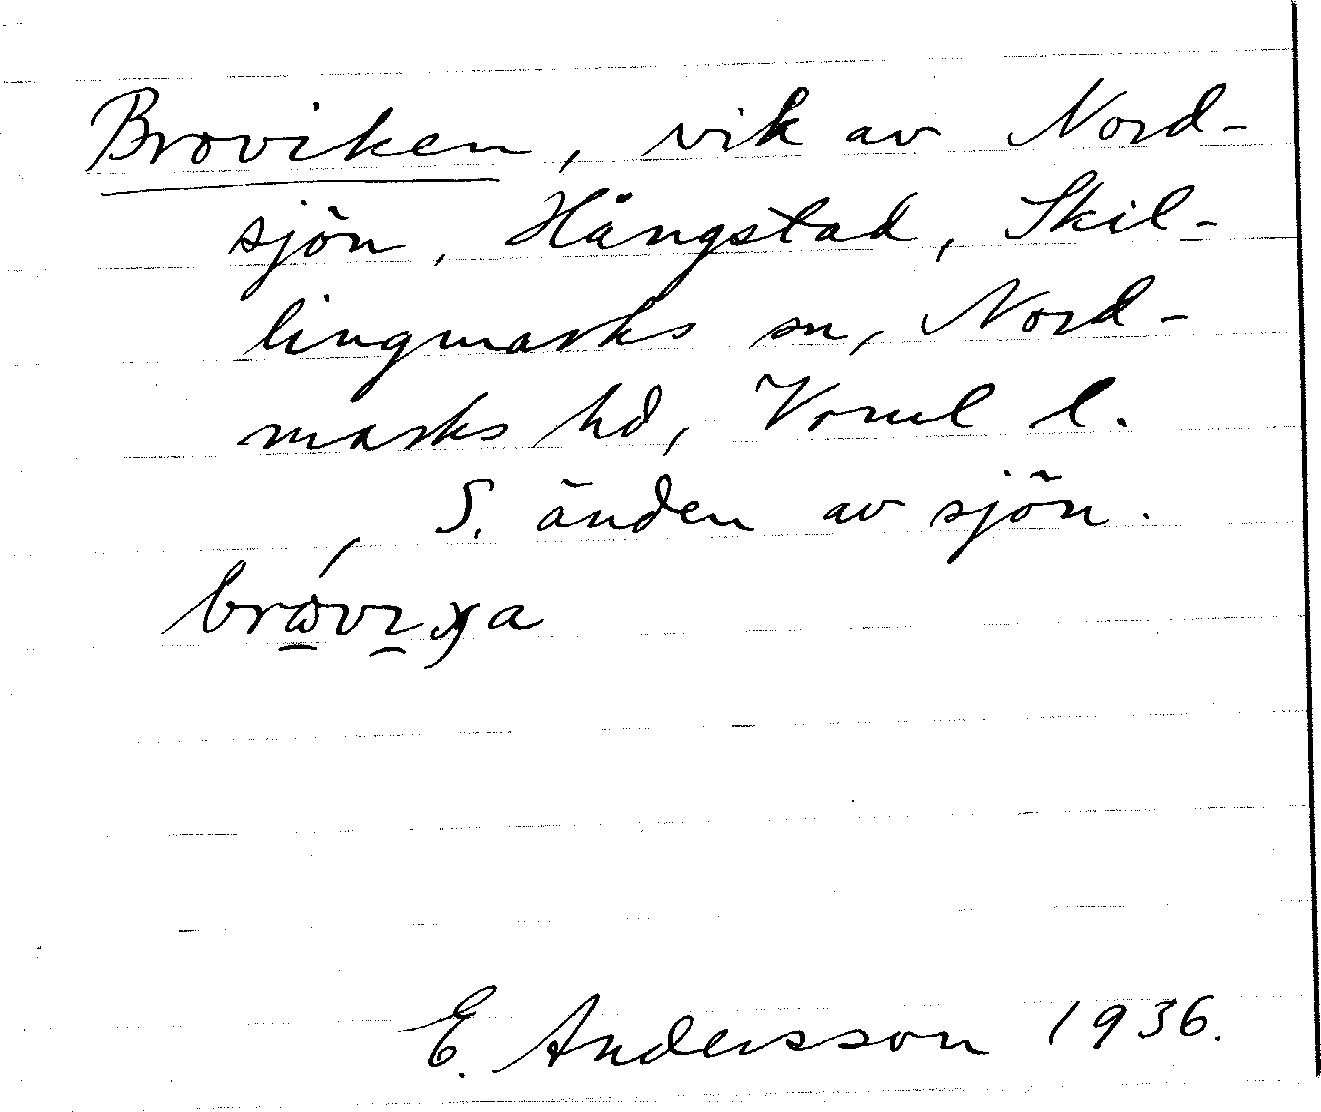 Broviken, vik av Nord-
sjön, Hångstad, Skil-
lingmarks sn, Nord-
marks hd, Vrml l.
S. änden av sjön.
E. Andersson 1936.